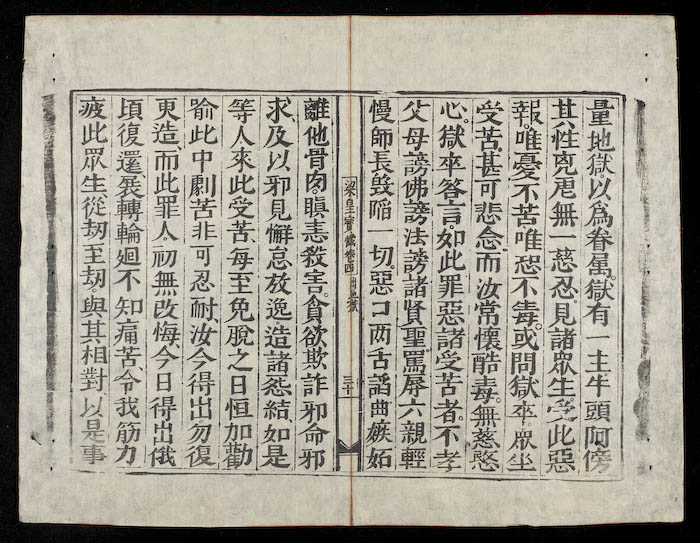 量地獄以爲眷屬。獄有一主。牛頭阿傍
其性兇虐無一慈忍。見諸衆生受此惡
報。唯憂不苦。唯恐不毒。或問獄卒。衆生
受苦。甚可悲念而汝常懷酷毒。無慈愍
心。獄卒答言。如此罪惡諸受苦者。不孝
父母謗佛謗法謗諸賢聖。罵辱六親輕
慢師長毀陷一切。惡口兩舌諂曲嫉妬
梁皇寶懺卷四
離他骨肉。瞋恚殺害。貪欲欺詐邪命邪
求及以邪見懈怠放逸造諸怨結如是
等人來此受苦、每至免脫之日恒加勸
喻此中劇苦非可忍耐、汝今得出勿復
更造、而此罪人。初無改悔今日得出俄
頃復還、展轉輪迴不知痛苦、令我筋力
疲此眾生從劫、至劫。與其相對、以是事